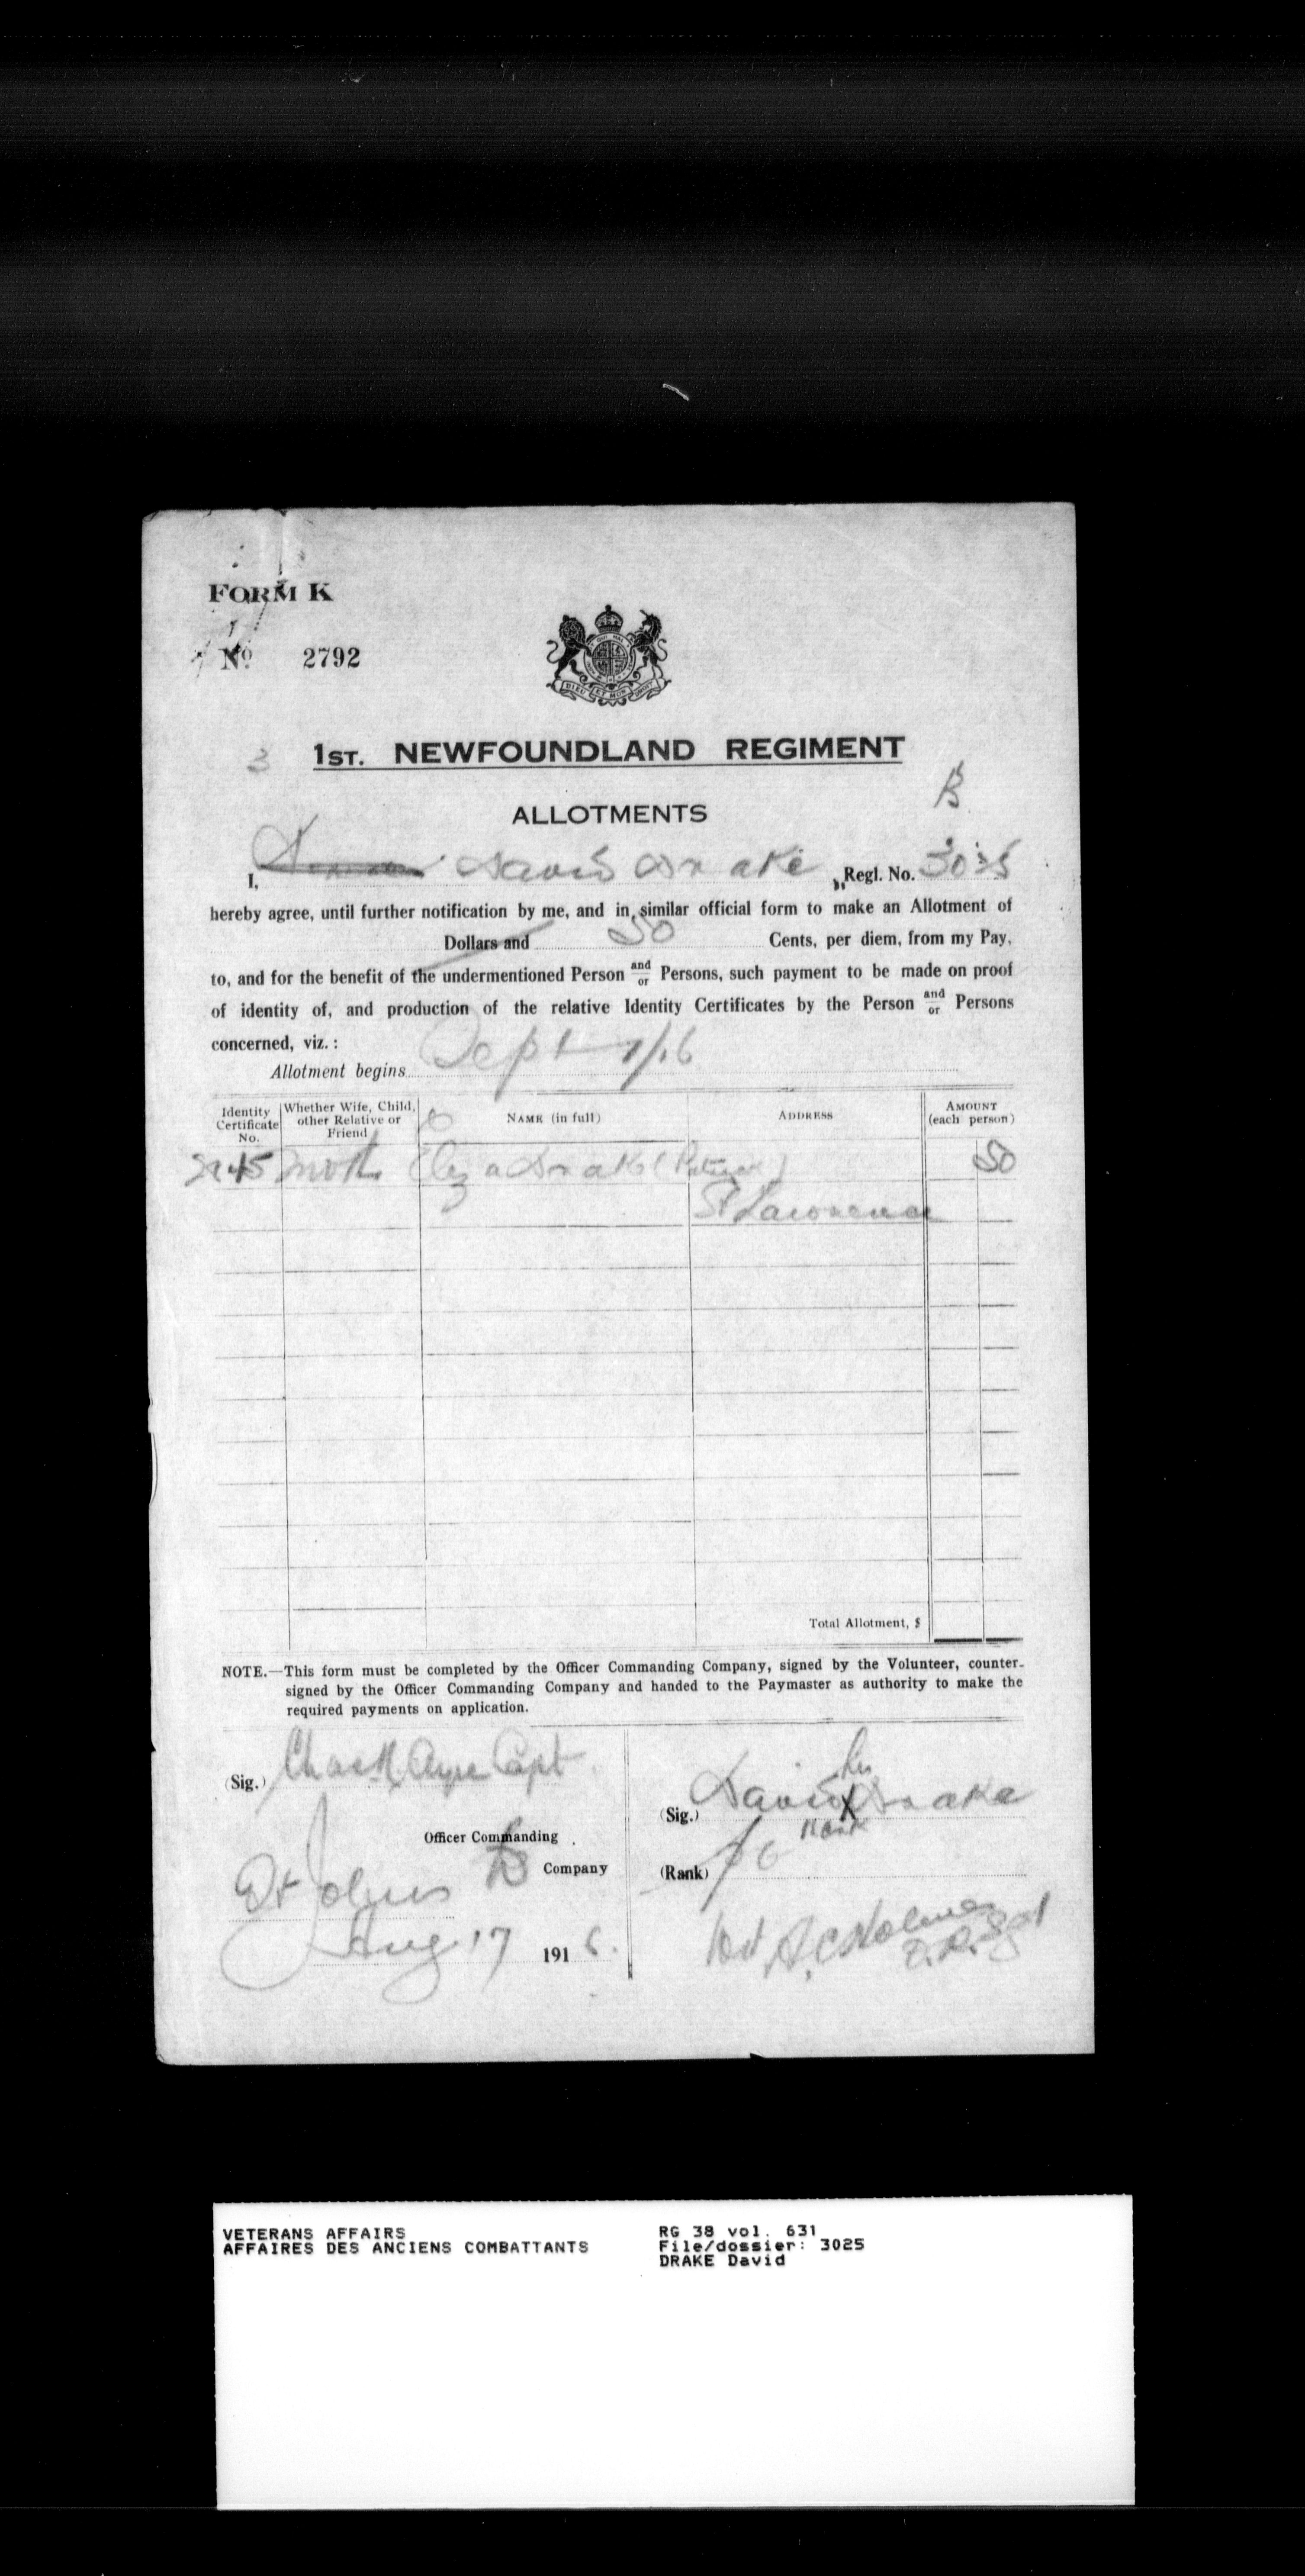 FORM K
No 2792
DIEU ET MON DROIT
3
1ST. NEWFOUNDLAND REGIMENT
B
ALLOTMENTS
I, David Drake, Regl. No. 3025
hereby agree, until further notification by me, and in similar official form to make an Allotment of
Dollars and 50 Cents, per diem, from my Pay,
to, and for the benefit of the undermentioned Person and/or Persons, such payment to be made on proof
of identity of, and production of the relative Identity Certificates by the Person and/or Persons
concerned, viz. :
Allotment begins Sept 1/16
Identity Certificate No. Whether Wife, Child, other Relative or Friend NAME (in full) ADDRESS AMOUNT (each person)
Moth Eliza Drake (Patrick) 50
St Lawrence
Total Allotment, $
NOTE.—This form must be completed by the Officer Commanding Company, signed by the Volunteer, counter-
signed by the Officer Commanding Company and handed to the Paymaster as authority to make the
required payments on application.
(Sig.) Chas H Ayre Capt
Officer Commanding
Company
St Johns
Aug 17 1916.
his
(Sig.) David X Drake
mark
(Rank)
Wit A. C. Holmes
VETERANS AFFAIRS
AFFAIRES DES ANCIENS COMBATTANTS
RG 38 vol. 631
File/dossier: 3025
DRAKE David